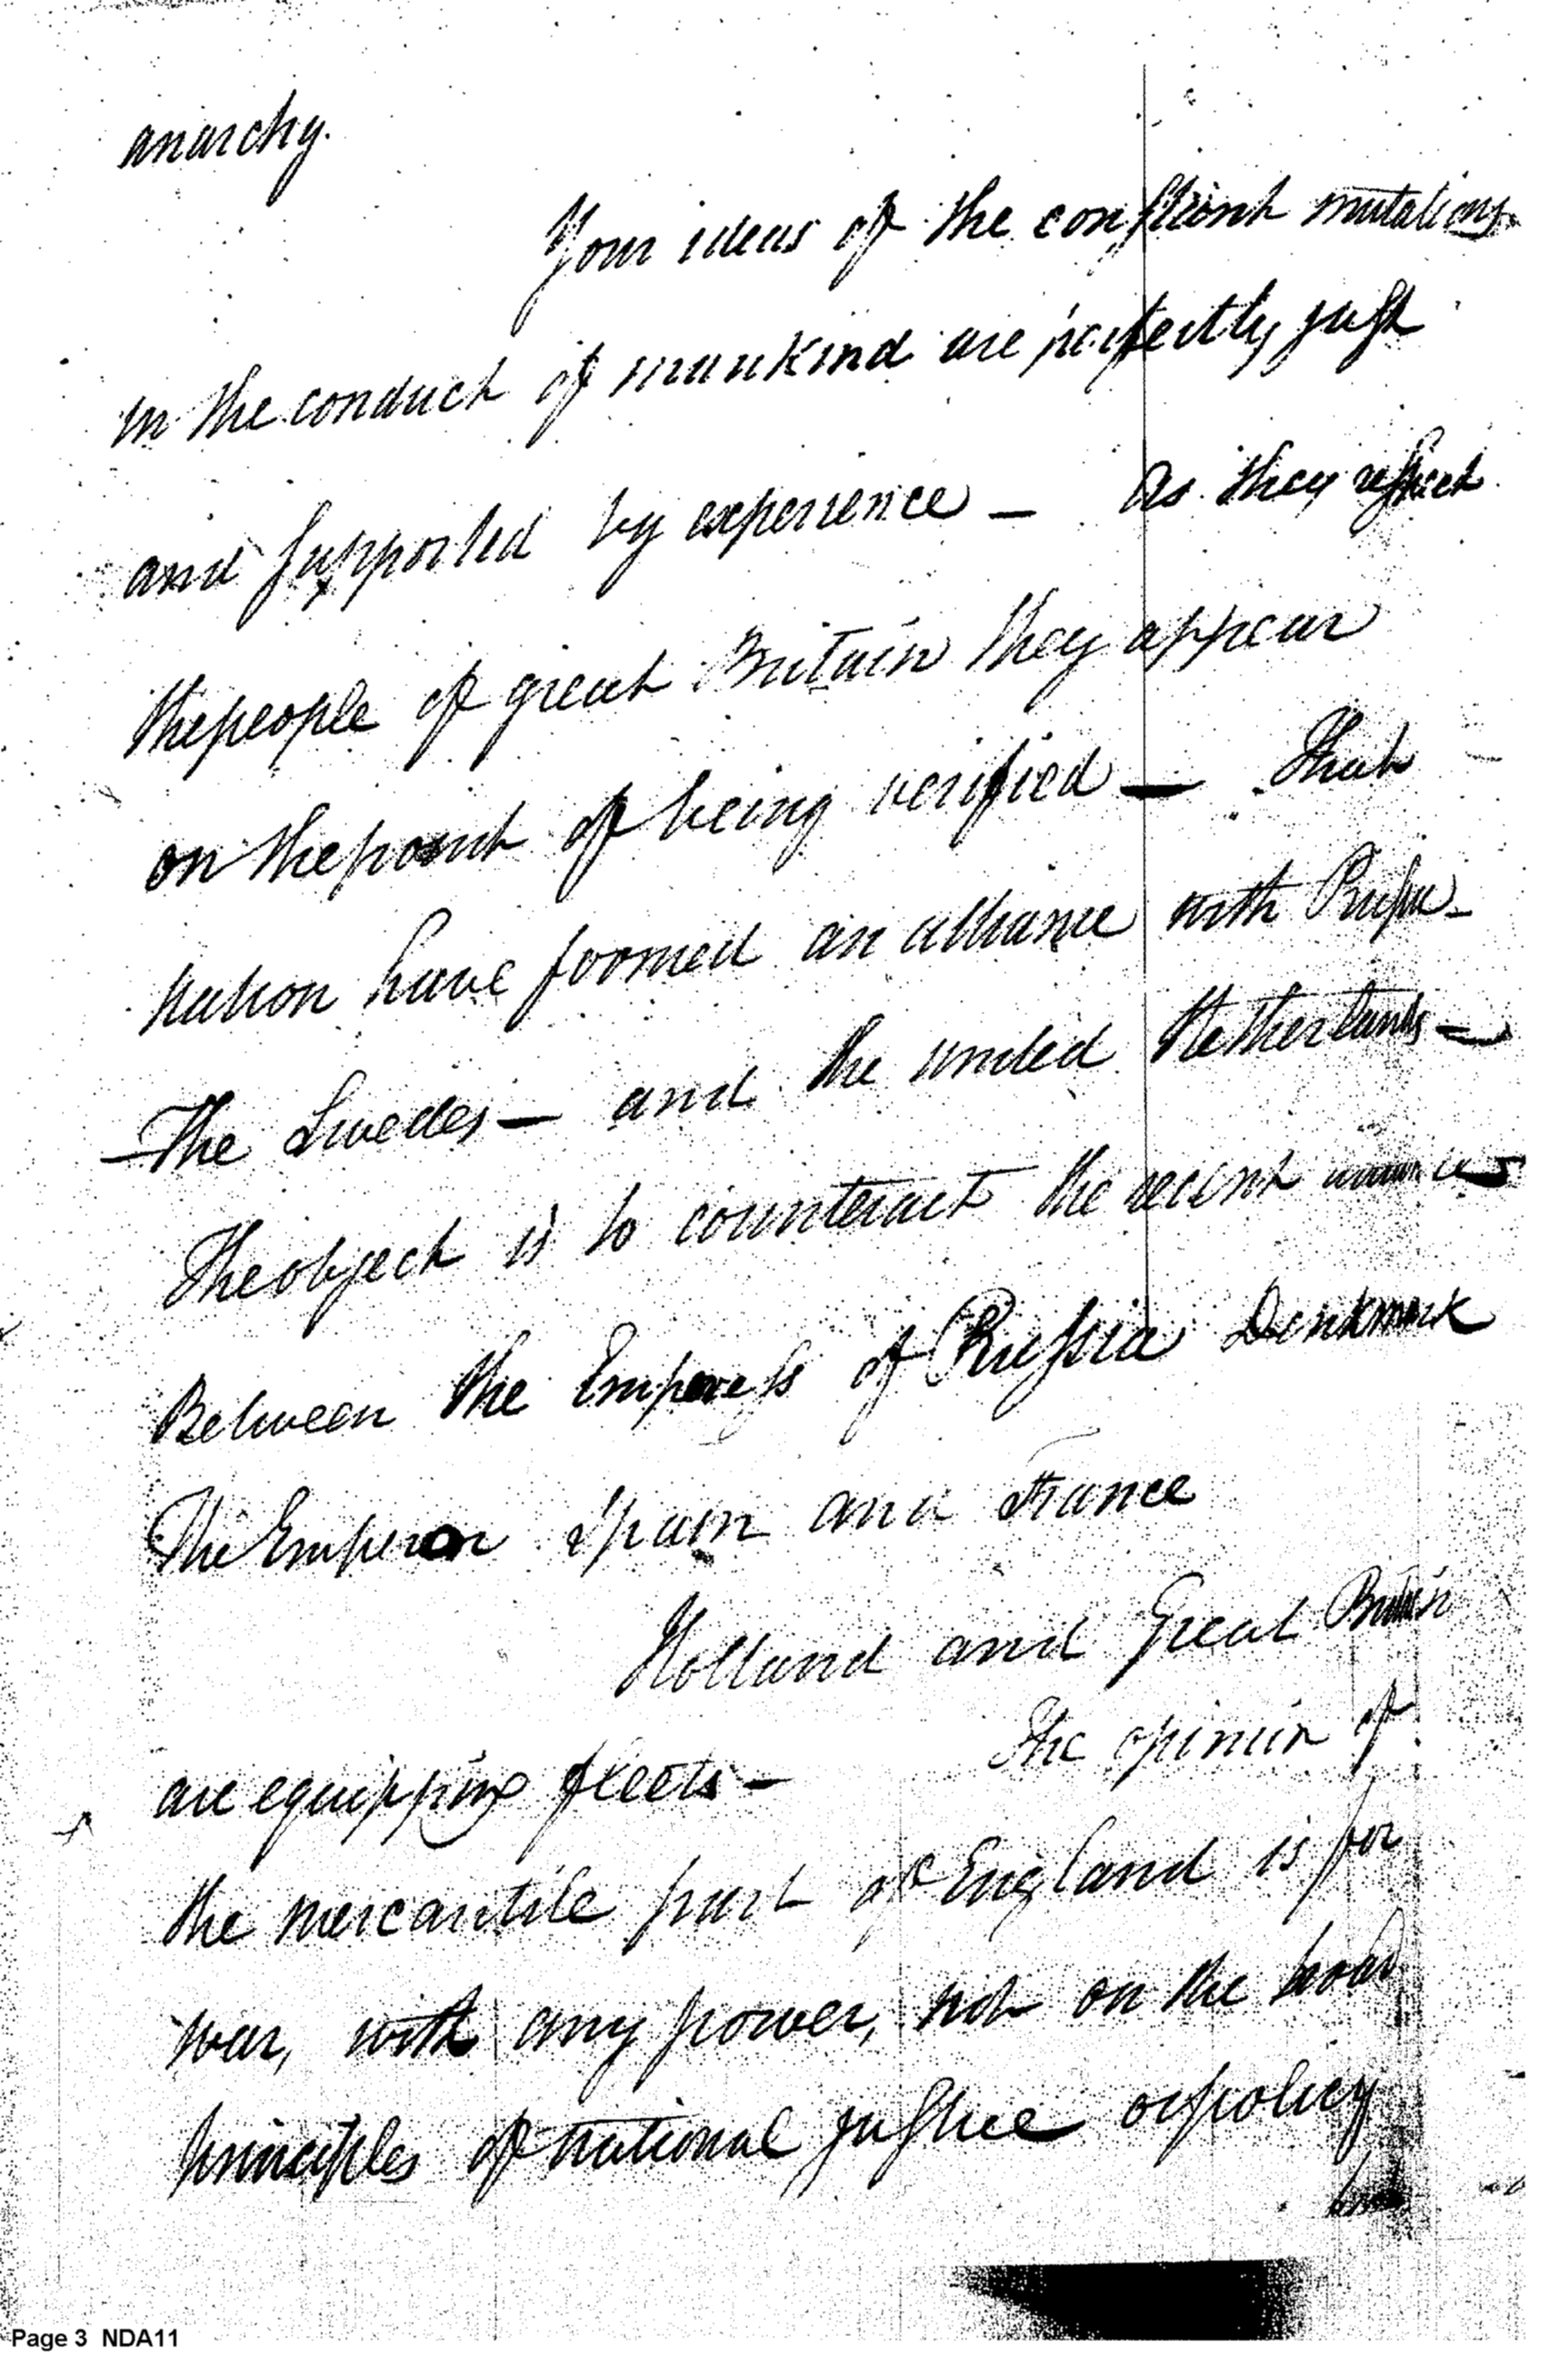 anarchy.
Your ideas of the constant mutations
in the conduct of mankind are perfectly just
and supported by experience — As they respect
the people of great Britain they appear
on the point of being verified — That
nation have foormed an alliance with Prussia
The Swedes — and the united Netherlands —
The object is to counteract the recent
Between the Empress of Russia Denkmark
The Emperor Spain and France
Holland and Great Britain
are equipping fleets — The opinion of
the mercantile part of England is for
war, with any power, not on the broad
principles of national justice or policy
but
Page 3 NDA11